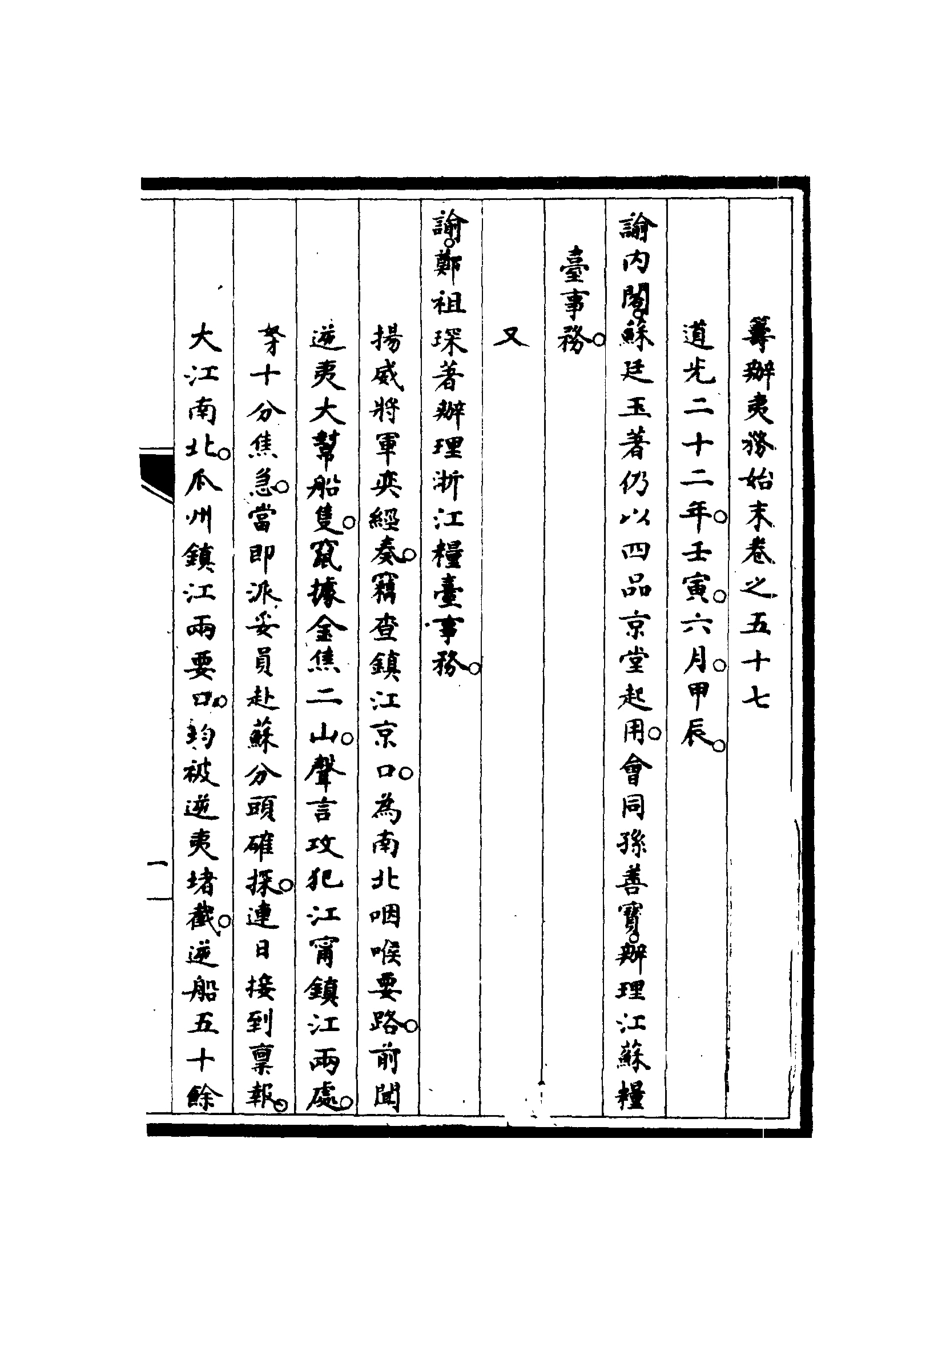 籌辦夷務始末卷之五十七
道光二十二年。壬寅。六月。甲辰。
諭內閣。蘇廷玉著仍以四品京堂起用。會同孫善寶。辦理江蘇糧
臺事務。
又
諭。鄭祖琛著辦理浙江糧臺事務。
揚威將軍奕經奏。竊查鎮江京口。為南北咽喉要路。前聞
逆夷大幫船隻。竄據金焦二山。聲言攻犯江甯鎮江兩處。
奴才十分焦急。當即派妥員赴蘇分頭確探。連日接到稟報。
大江南北。瓜州鎮江兩要口。均被逆夷堵截。逆船五十餘
一